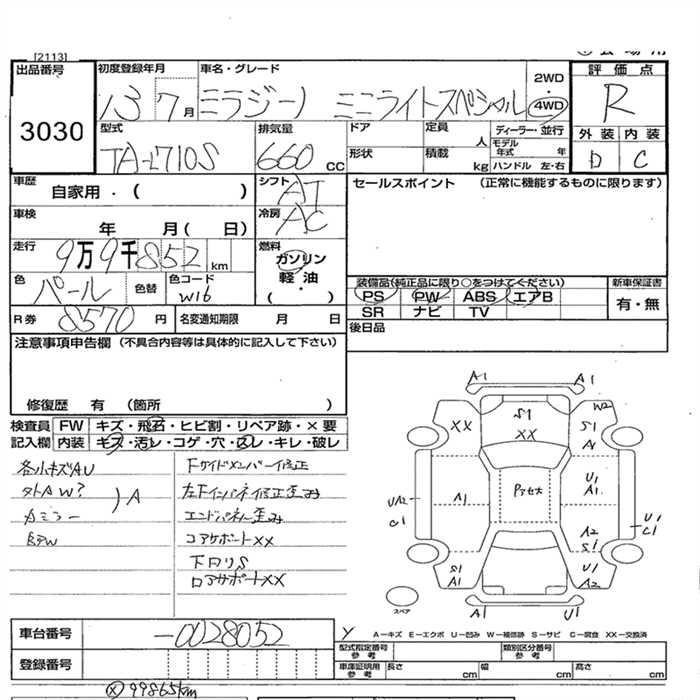 [2113]
出品番号
3030
初度登録年月
13 7月
車名・グレード
ミラジーノ ミニライトスペシャル
2WD
4WD
評価点
R
外装 内装
D C
型式
TA-L710S
排気量
660 cc
ドア
定員
人
ディーラー・並行
モデル年式 年
形状
積載
kg
ハンドル 左・右
車歴
自家用・( )
シフト
AT
セールスポイント (正常に機能するものに限ります)
車検
年 月( 日)
冷房
AC
走行
9万9千852 km
燃料
ガソリン
軽・油
( )
色
パール
色替
色コード
W16
装備品(純正品に限り○をつけてください)
PS PW ABS エアB
SR ナビ TV
新車保証書
有・無
R券
8570 円
名変通知期限 月 日
後日品
注意事項申告欄 (不具合内容等は具体的に記入して下さい)
修復歴 有 (箇所 )
検査員 FW キズ・飛石・ヒビ割・リペア跡・×要
記入欄 内装 キズ・汚レ・コゲ・穴・スレ・キレ・破レ
各小キズAU
Fサイドメンバー修正
外トAW?
左Fインパネ修正歪み
カミラー
)A
エンドパネル歪み
コアサポートXX
下回りS
ロアサポートXX
A1 A1
XX S1 XX
W2 S1 A1
UA2 C1
A1
Pアセス
U1 A1
A2 S1
U1 C1
S1 A1
U1 A2
スペア
A1 U1
車台番号
-0028052
Y A-キズ E-エクボ U-凹み W-補修跡 S-サビ C-腐食 XX-交換済
登録番号
型式指定番号 参考
類別区分番号 参考
車庫証明用 参考
長さ cm
幅 cm
高さ cm
Ⓧ99865km